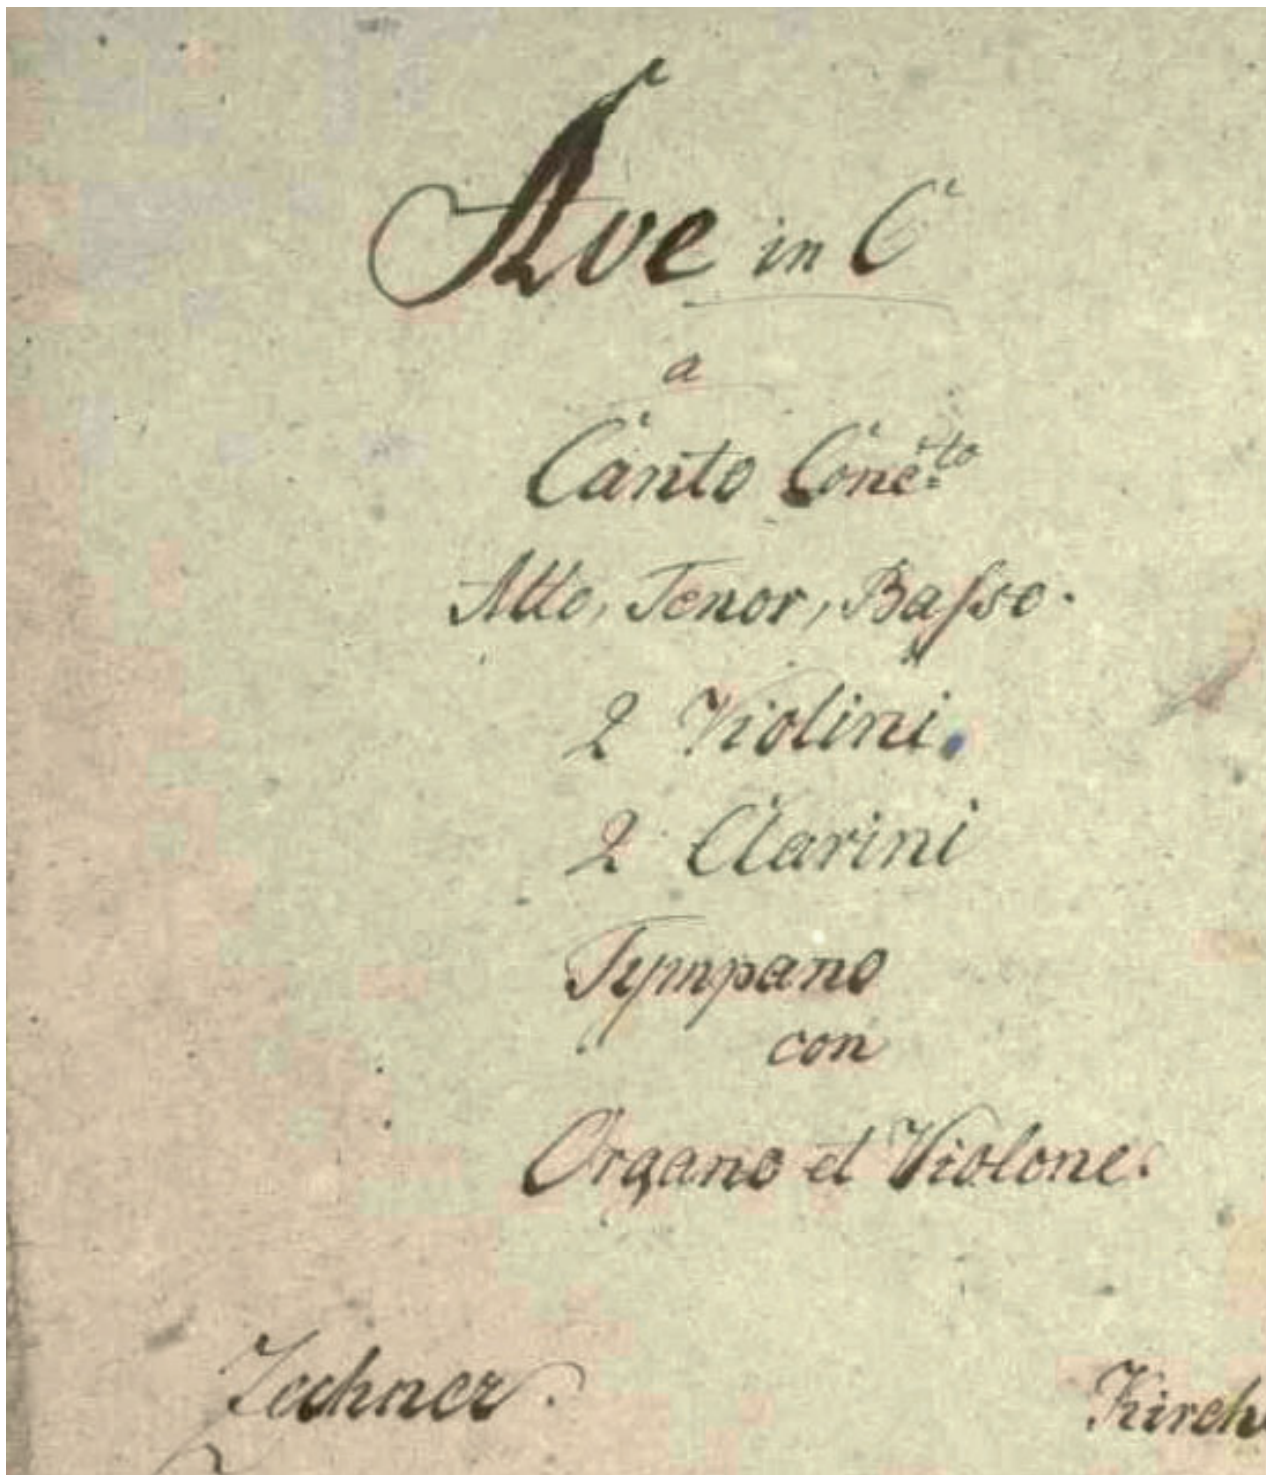 Ave in C
a
Canto Conc:to
Alto, Tenor, Basso.
2 Violini.
2 Clarini
Tympano
con
Organo et Violone.
Zechner. Kirch